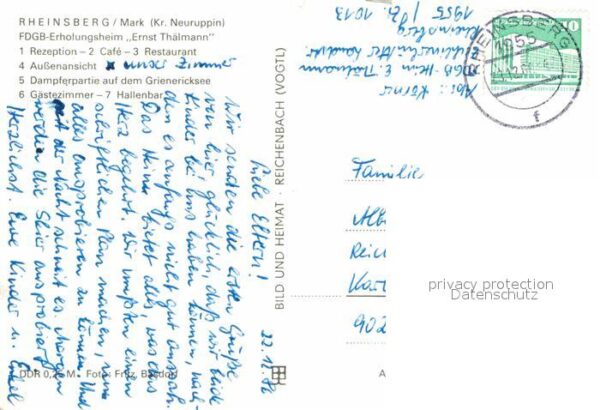 RHEINSBERG / Mark (Kr. Neuruppin)
FDGB-Erholungsheim „Ernst Thälmann"
1 Rezeption – 2 Café – 3 Restaurant
4 Außenansicht x unser Zimmer
5 Dampferpartie auf dem Grienericksee
6 Gästezimmer – 7 Hallenbar
22.12.82
Liebe Eltern!
Wir senden die ersten Grüße
von hier, glücklich, daß wir beide
Kinder bei uns haben können, nach-
dem es anfangs nicht gut aussah.
Das Heim bietet alles, was das
Herz begehrt. Wir mußten einen
schriftlichen Plan machen, um
alles ausprobieren zu können. Und
der Nacht schneit es. Morgen
werden die Skier ausprobiert.
Herzlichst Eure Kinder u. Enkel
DDR 0,25 M Foto: Fritz,
BILD UND HEIMAT · REICHENBACH (VOGTL)
Abs.: Körner
FDGB-Heim E. Thälmann
Rheinsberg
1955 / Zi. 1013
RHEINSBERG
1955
f
10
Familie
Alb
Reic
Kar
902
privacy protection
Datenschutz
A